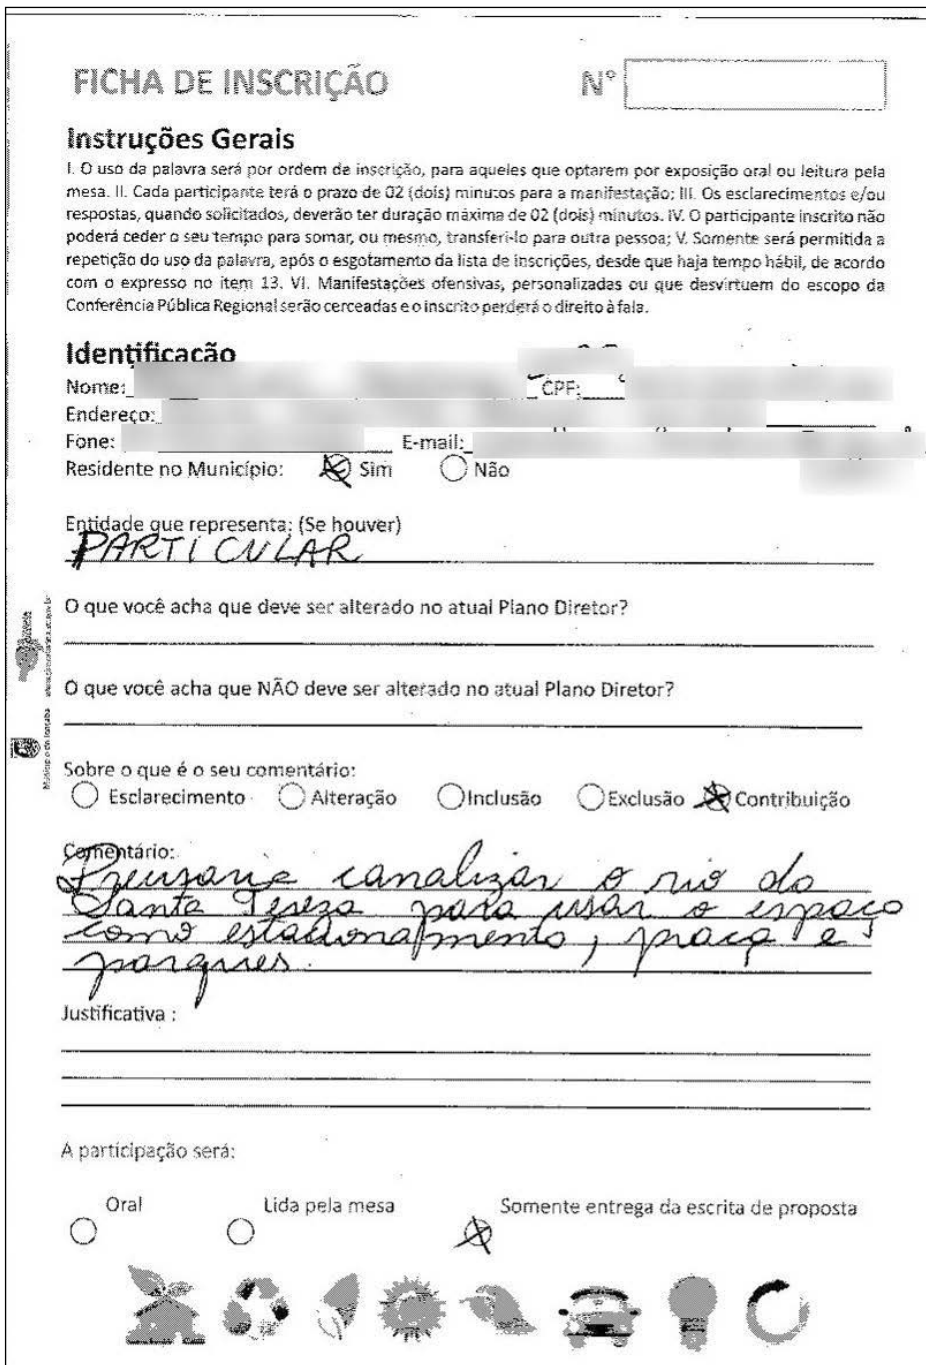 FICHA DE INSCRIÇÃO Nº
Instruções Gerais
I. O uso da palavra será por ordem de inscrição, para aqueles que optarem por exposição oral ou leitura pela
mesa. II. Cada participante terá o prazo de 02 (dois) minutos para a manifestação; III. Os esclarecimentos e/ou
respostas, quando solicitados, deverão ter duração máxima de 02 (dois) minutos. IV. O participante inscrito não
poderá ceder o seu tempo para somar, ou mesmo, transferi-lo para outra pessoa; V. Somente será permitida a
repetição do uso da palavra, após o esgotamento da lista de inscrições, desde que haja tempo hábil, de acordo
com o expresso no item 13. VI. Manifestações ofensivas, personalizadas ou que desvirtuem do escopo da
Conferência Pública Regional serão cerceadas e o inscrito perderá o direito à fala.
Identificação
Nome: CPF:
Endereço:
Fone: E-mail:
Residente no Município: Sim Não
Entidade que representa: (Se houver)
PARTICULAR
O que você acha que deve ser alterado no atual Plano Diretor?
O que você acha que NÃO deve ser alterado no atual Plano Diretor?
Sobre o que é o seu comentário:
Esclarecimento Alteração Inclusão Exclusão Contribuição
Comentário:
Precisaria canalizar o rio do
Santa Tereza para usar o espaço
como estacionamento, praça e
parques.
Justificativa :
A participação será:
Oral Lida pela mesa Somente entrega da escrita de proposta